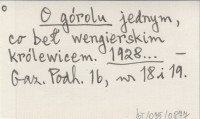 O górolu jednym,
co beł wengierskim
królewicem. 1928... —
Gaz. Podh. 16, nr 18 i 19.